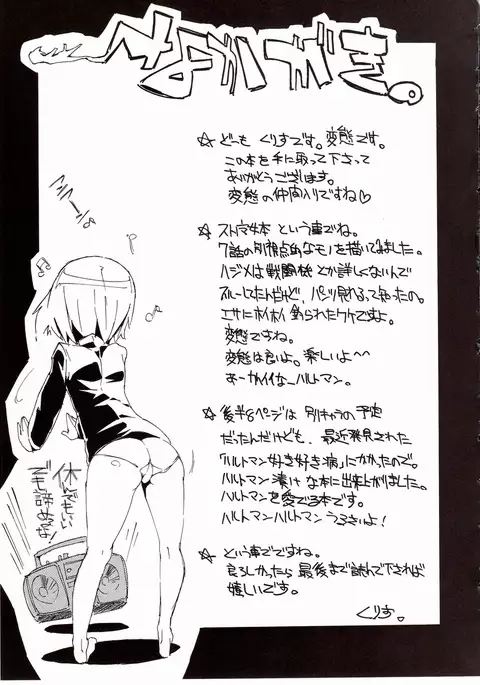 まえがき。
☆ どーも くりすです。変態です。
この本を手に取って下さって
ありがとうございます。
変態の仲間入りですね♡
☆ ストパン本 という事でね。
7話の別視点的なモノを描いてみました。
ハジメは戦闘機とか詳しくないんで
スルーしてたんだけど、パンツ見れるって知ったの。
エサにホイホイ釣られたワケですよ。
変態ですね。
変態は良いよ。楽しいよ^^
あーかわイイなーハルトマン。
☆ 後半8ページは 別キャラの予定
だったんだけども、最近発見された
「ハルトマン好き好き病」にかかったので。
ハルトマン漬けな本に出来上がりました。
ハルトマンを愛でる本です。
ハルトマンハルトマン うるさいよ!
☆ という事でですね。
良ろしかったら 最後まで読んで下されば
嬉しいです。
くりす。
休んでもいい
でも諦めるな!